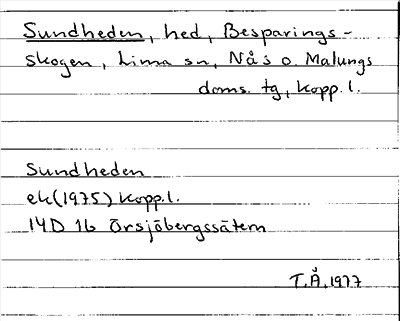 Sundheden, hed, Besparings-
skogen, Lima sn, Nås o. Malungs
doms. tg, Kopp. l.
Sundheden
ek (1975) Kopp. l.
14D 1b Örsjöbergssätern
T.Å. 1977